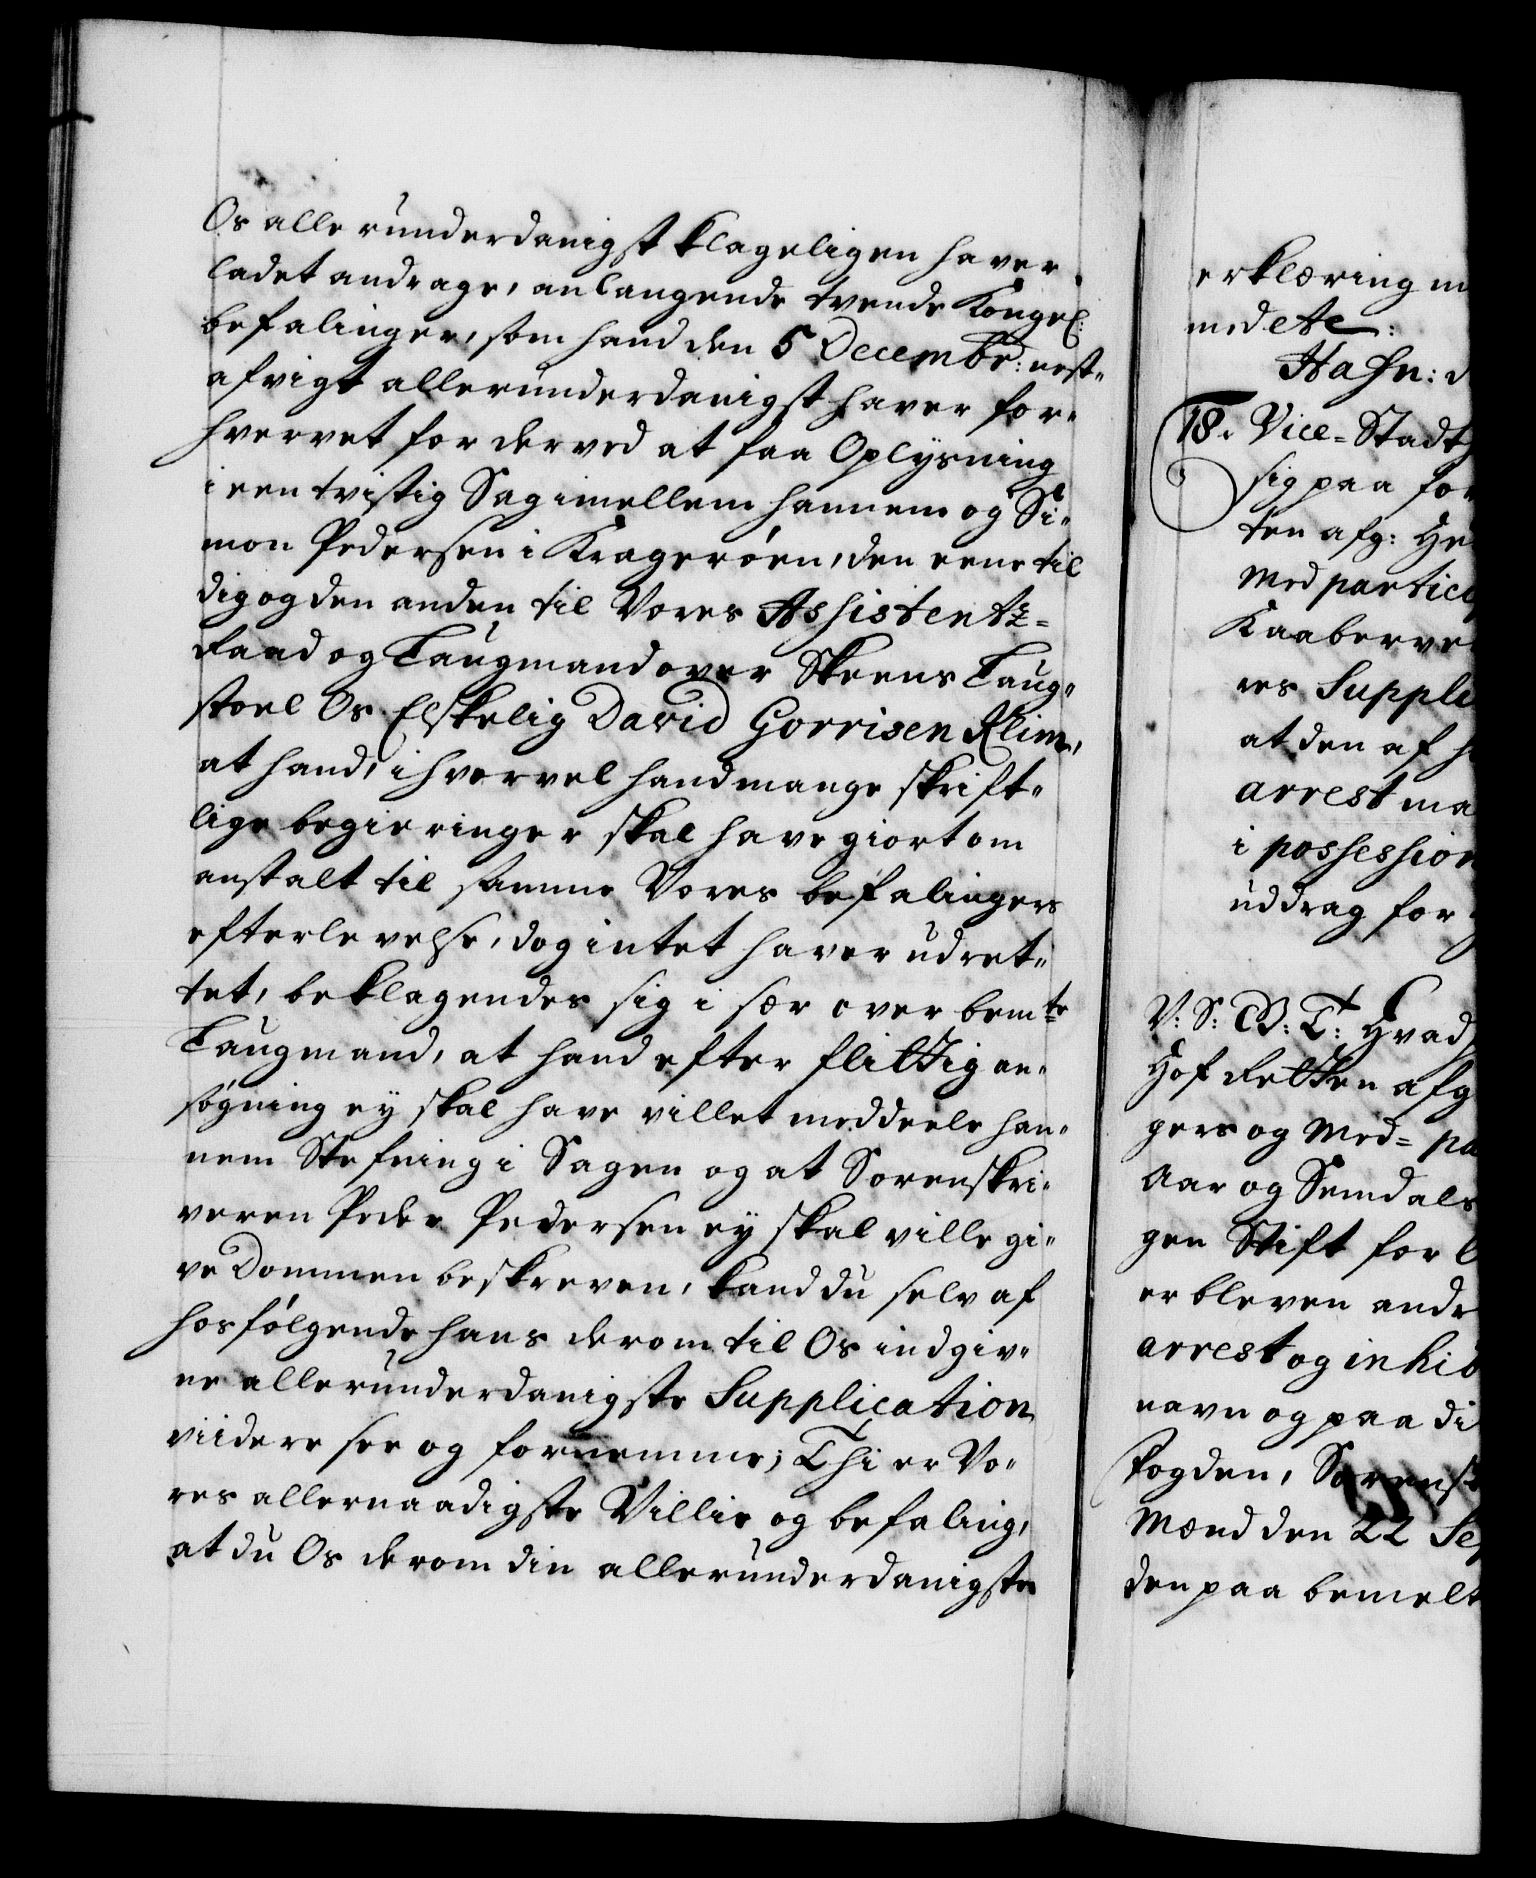 Os allerunderdanigst klageligen haver
ladet andrage, anlangende tvende Kongel:
befalinger, som hand den 5 Decembr: nest-
afvigt allerunderdanigst haver for-
hvervet for derved at faa Oplysning
i een tvistig Sag imellem hannem og Si-
mon Pedersen i Kragerøen, den eene til
dig og den anden til Vores Assistentz-
Raad og Laugmand over Skeens Laug-
stoel Os Elskelig David Gorrisen Klim,
at hand, ihvorvel hand mange skrift-
lige begieringer skal have giort om
anstalt til samme Vores befalingers
efterlevelse, dog intet haver udret-
tet, beklagendes sig i sær over bemte
Laugmand, at hand efter flittig an-
søgning ey skal have villet meddeele han-
nem Stefning i Sagen og at Sorenskri-
veren Peder Pedersen ey skal ville gi-
ve Dommen beskreven, kand du selv af
hosfølgende hans derom til Os indgiv-
ne allerunderdanigste Supplication
viidere see og fornemme; Thi er Vo-
res allernaadigste Villie og befaling,
at du Os derom din allerunderdanigste
erklæring m
med etc:
Hafn: d
18. Vice-Stadth
sig paa for
ten afg: He
Med particip
Kaaberver
res Suppli
at den af h
arrest ma
i possession
uddrag for
V: S: G: T: Hvad
Hof Retten afg
gers og Med- pa
Aar og Semdals
gen Stift for l
er bleven andr
arrest og inhib
navn og paa di
Fogden, Sorensk
Mænd den 22 Sep
den paa bemelt